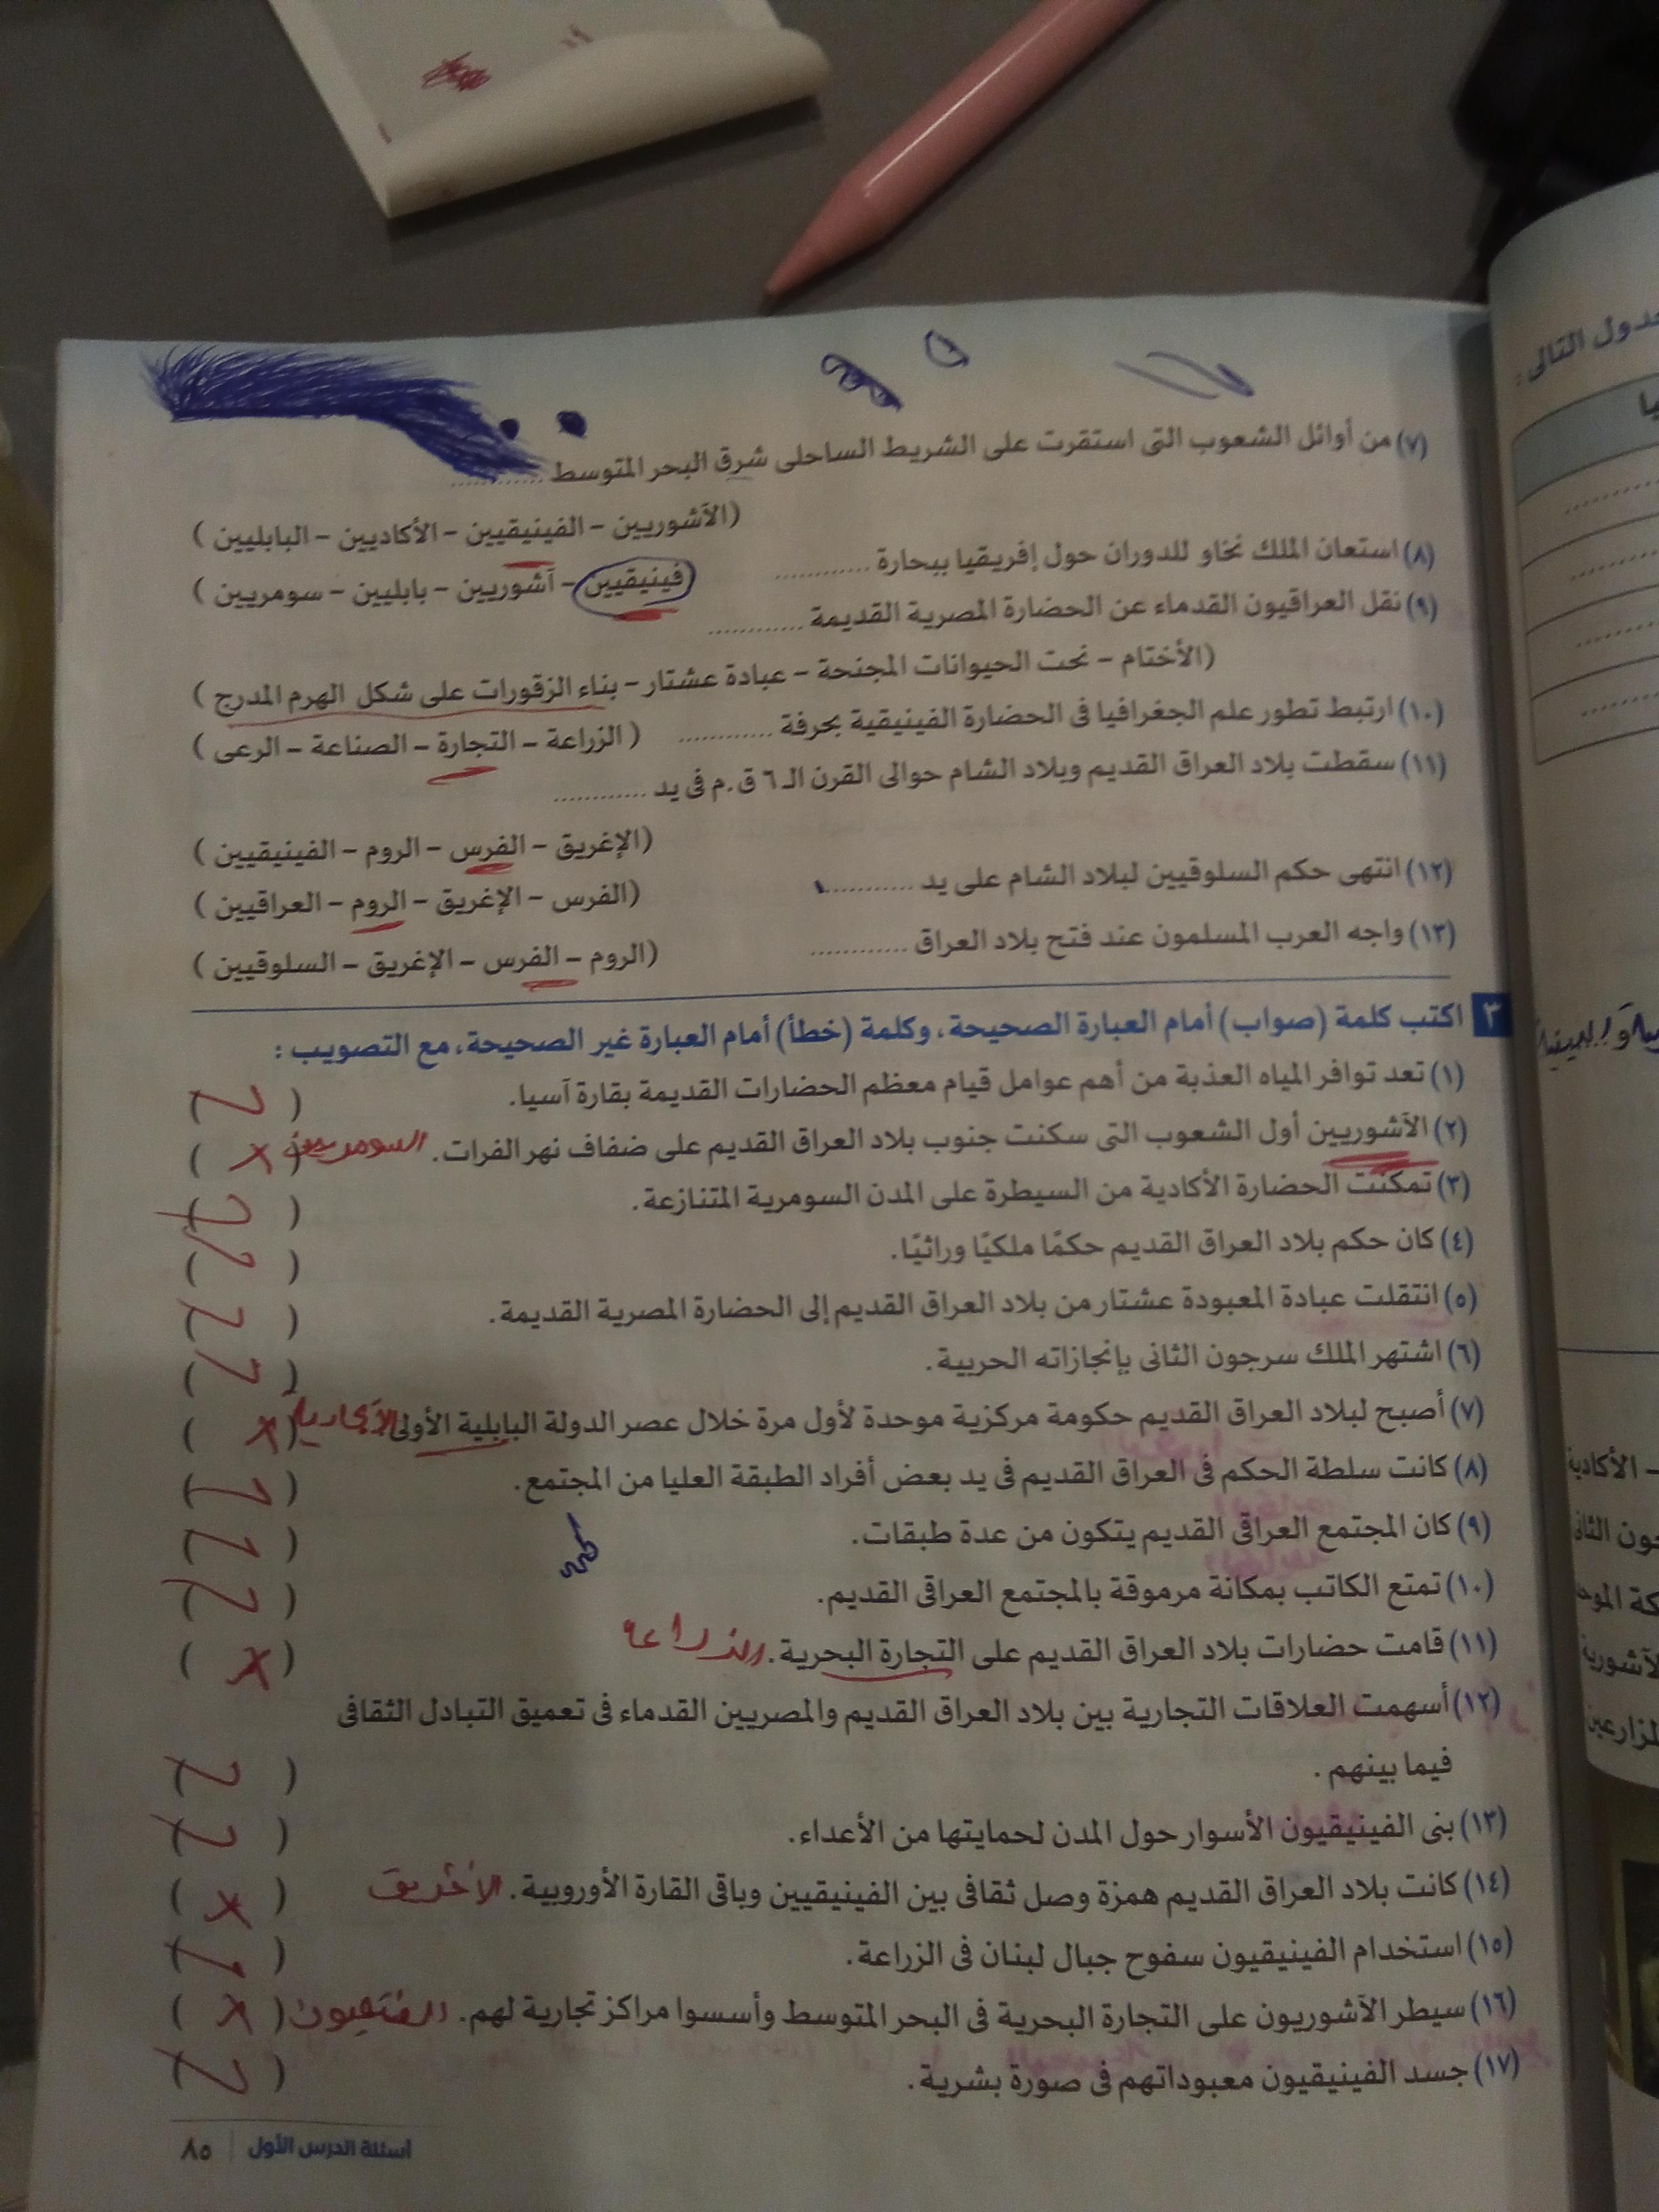 (٧) من أوائل الشعوب التى استقرت على الشريط الساحلى شرق البحر المتوسط ............
(الآشوريين - الفينيقيين - الأكاديين - البابليين)
(٨) استعان الملك نخاو للدوران حول إفريقيا ببحارة ............
(فينيقيين - آشوريين - بابليين - سومريين)
(٩) نقل العراقيون القدماء عن الحضارة المصرية القديمة ............
(الأختام - نحت الحيوانات المجنحة - عبادة عشتار - بناء الزقورات على شكل الهرم المدرج)
(١٠) ارتبط تطور علم الجغرافيا فى الحضارة الفينيقية بحرفة ............ (الزراعة - التجارة - الصناعة - الرعى)
(١١) سقطت بلاد العراق القديم وبلاد الشام حوالى القرن الـ ٦ ق.م فى يد ............
(الإغريق - الفرس - الروم - الفينيقيين)
(١٢) انتهى حكم السلوقيين لبلاد الشام على يد ............ (الفرس - الإغريق - الروم - العراقيين)
(١٣) واجه العرب المسلمون عند فتح بلاد العراق ............ (الروم - الفرس - الإغريق - السلوقيين)
٣ اكتب كلمة (صواب) أمام العبارة الصحيحة، وكلمة (خطأ) أمام العبارة غير الصحيحة، مع التصويب :
(١) تعد توافر المياه العذبة من أهم عوامل قيام معظم الحضارات القديمة بقارة آسيا. ( )
(٢) الآشوريين أول الشعوب التى سكنت جنوب بلاد العراق القديم على ضفاف نهر الفرات. السومريين (x)
(٣) تمكنت الحضارة الأكادية من السيطرة على المدن السومرية المتنازعة. ( )
(٤) كان حكم بلاد العراق القديم حكمًا ملكيًا وراثيًا. ( )
(٥) انتقلت عبادة المعبودة عشتار من بلاد العراق القديم إلى الحضارة المصرية القديمة. ( )
(٦) اشتهر الملك سرجون الثانى بإنجازاته الحربية. ( )
(٧) أصبح لبلاد العراق القديم حكومة مركزية موحدة لأول مرة خلال عصر الدولة البابلية الأولى. الأكادية (x)
(٨) كانت سلطة الحكم فى العراق القديم فى يد بعض أفراد الطبقة العليا من المجتمع. ( )
(٩) كان المجتمع العراقى القديم يتكون من عدة طبقات. ( )
(١٠) تمتع الكاتب بمكانة مرموقة بالمجتمع العراقى القديم. ( )
(١١) قامت حضارات بلاد العراق القديم على التجارة البحرية. الزراعة (x)
(١٢) أسهمت العلاقات التجارية بين بلاد العراق القديم والمصريين القدماء فى تعميق التبادل الثقافى
فيما بينهم. ( )
(١٣) بنى الفينيقيون الأسوار حول المدن لحمايتها من الأعداء. ( )
(١٤) كانت بلاد العراق القديم همزة وصل ثقافى بين الفينيقيين وباقى القارة الأوروبية. الأغريق (x)
(١٥) استخدام الفينيقيون سفوح جبال لبنان فى الزراعة. ( )
(١٦) سيطر الآشوريون على التجارة البحرية فى البحر المتوسط وأسسوا مراكز تجارية لهم. (x)
(١٧) جسد الفينيقيون معبوداتهم فى صورة بشرية. ( )
أسئلة الدرس الأول ٨٥
جدول التالى :
- الأكادية